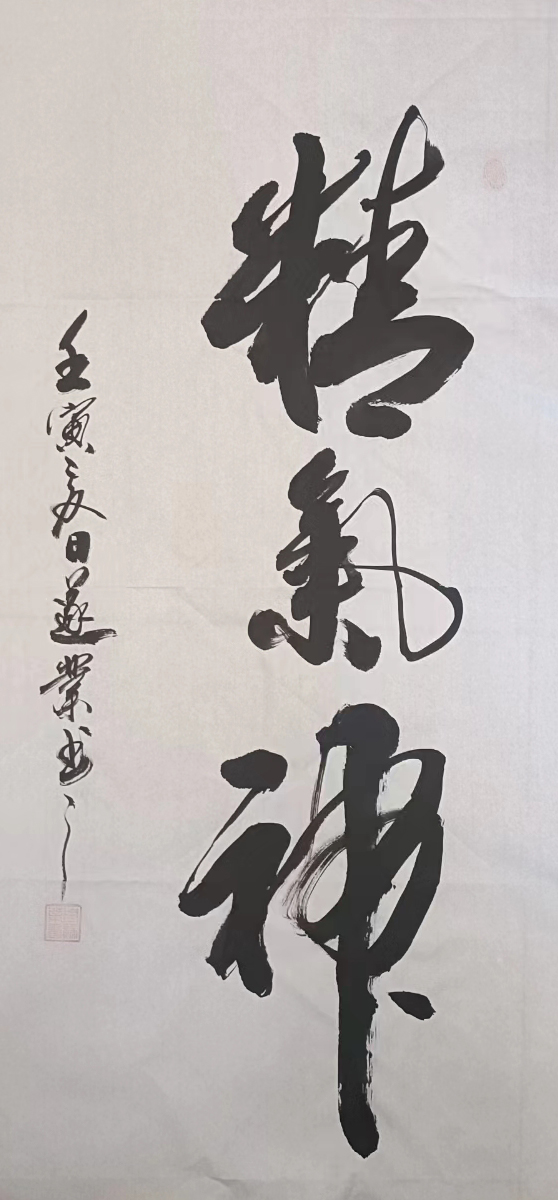 精氣神
壬寅之夏日遂業书之